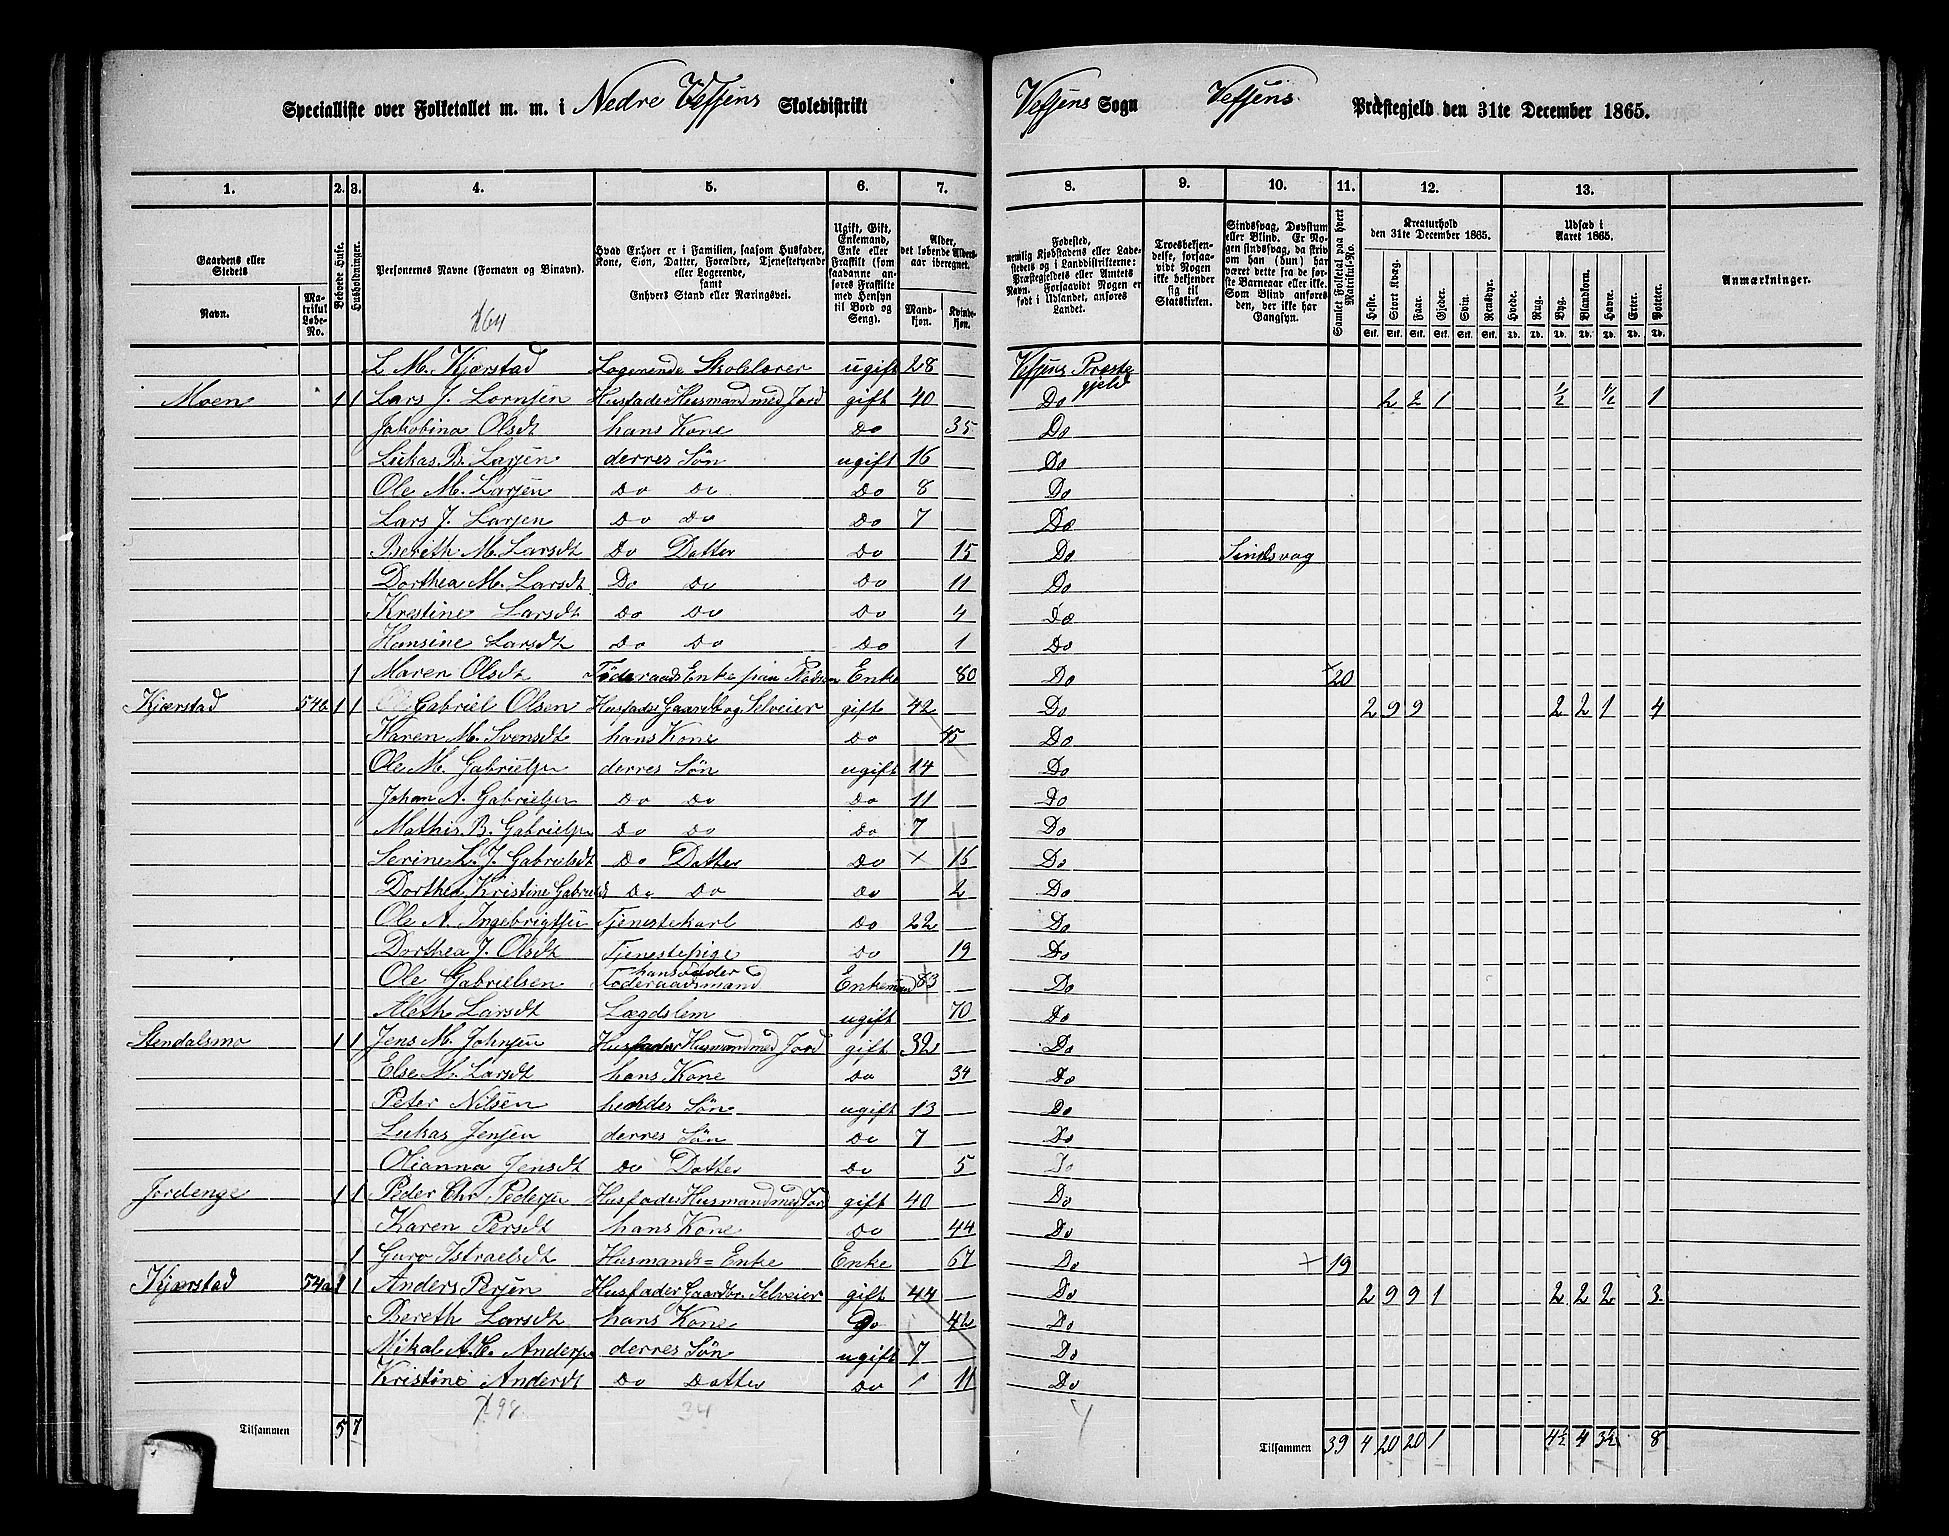 Specialliste over Folketallet m. m. i Nedre Vefsens Skoledistrikt Vefsens Sogn Vefsens Præstegjeld den 31te December 1865.
1. 2. 3. 4. 5. 6. 7. 8. 9. 10. 11. 12. 13.
Gaardens eller Stedets
Navn.
Matrikul Løbe-No.
Beboede Huse.
Husholdninger.
Personernes Navne (Fornavn og Binavn).
Hvad Enhver er i Familien, saasom Husfader, Kone, Søn, Datter, Forældre, Tjenestetyende eller Logerende, samt Enhvers Stand eller Næringsvei.
Ugift, Gift, Enkemand, Enke eller Fraskilt (som saadanne anføres Fraskilte med Hensyn til Bord og Seng).
Alder, det løbende Alders-aar iberegnet.
Mandkjøn. Kvindekjøn.
Fødested, nemlig Kjøbstadens eller Ladestedets og i Landdistrikterne: Præstegjeldets eller Amtets Navn. Forsaavidt Nogen er født i Udlandet, anføres Landet.
Troesbekjendelse, forsaavidt Nogen ikke bekjender sig til Statskirken.
Sindssvag, Døvstum eller Blind. Er Nogen sindssvag, da skrives om han (hun) har været dette fra de første Barneaar eller ikke. Som Blind anføres den, der ikke har Gangsyn.
Samlet Folketal paa hvert Matrikul-No.
Kreaturhold den 31te December 1865.
Heste. Stort Kvæg. Faar. Gjeder. Svin. Rensdyr.
Stk. Stk. Stk. Stk. Stk. Stk.
Udsæd i Aaret 1865.
Hvede. Rug. Byg. Blandkorn. Havre. Erter. Poteter.
Td. Td. Td. Td. Td. Td. Td.
Anmærkninger.
L. M. Kjærstad Logerende Skolelærer ugift 28 Vefsens Præstegjeld
Moen 1 1 Lars J. Larnsen Husfader Husmand med Jord gift 40 Do 2 2 1 1/2 1/2 1
Jakobina Olsdt hans Kone Do 35 Do
Lukas B. Larsen derres Søn ugift 16 Do
Ole M. Larsen Do Do Do 8 Do
Lars J. Larsen Do Do Do 7 Do
Bereth M. Larsdt Do Datter Do 15 Do Sindsvag
Dorthea M. Larsdt Do Do Do 11 Do
Krestine Larsdt Do Do Do 4 Do
Hansine Larsdt Do Do Do 1 Do
1 Maren Olsdt Enke 80 Do 20
Kjærstad 54b 1 1 Gabriel Olsen Husfader Gaardb og Selveier gift 42 Do 2 9 9 2 2 1 4
Karen M. Svensdt hans Kone Do 45 Do
Ole M. Gabrielsen derres Søn ugift 14 Do
Johan A. Gabrielsen Do Do Do 11 Do
Mathis B. Gabrielsen Do Do Do 7 Do
Serine L. J. Gabrielsdt Do Datter Do 15 Do
Dorthea Kristine Gabrielsdt Do Do Do 2 Do
Ole A. Ingebrigtsen Tjenestekarl Do 22 Do
Dorthea J. Olsdt Tjenestepige Do 19 Do
Ole Gabrielsen hans Fader Føderaadsmand Enkemand 83 Do
Aleth Larsdt Lægdslem ugift 70 Do
Stendalsmo 1 1 Jens M. Johnsen Husfader Husmand med Jord gift 32 Do
Else M. Larsdt hans Kone Do 34 Do
Peter Nilsen hendes Søn ugift 13 Do
Lukas Jensen derres Søn Do 7 Do
Olianna Jensdt Do Datter Do 5 Do
Jordenge 1 1 Peder Chr. Pedersen Husfader Husmand med Jord gift 40 Do
Karen Persdt hans Kone Do 44 Do
1 Guro Istraelsdt Husmands=Enke Enke 67 Do 19
Kjærstad 54a 1 1 Anders Persen Husfader Gaardbr. Selveier gift 44 Do 2 9 9 1 2 2 2 3
Bereth Larsdt hans Kone Do 42 Do
Mikal A. C. Andersen derres Søn ugift 7 Do
Kristine Andersdt Do Datter Do 11 Do
Tilsammen 5 7 34
Tilsammen 39 4 20 20 1 4½ 4 3½ 8